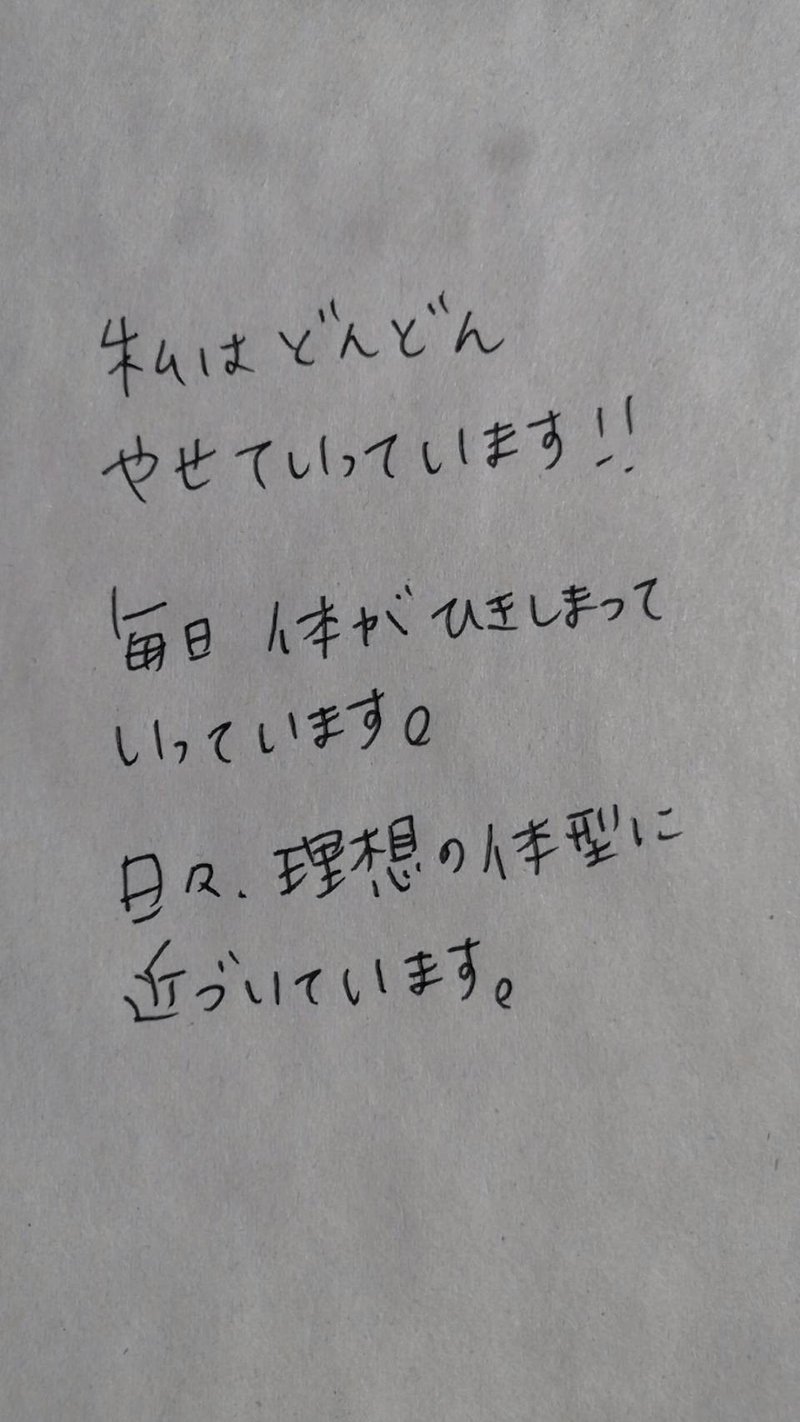 私はどんどん
やせていっています!!
毎日 体がひきしまって
いっています。
日々、理想の体型に
近づいています。